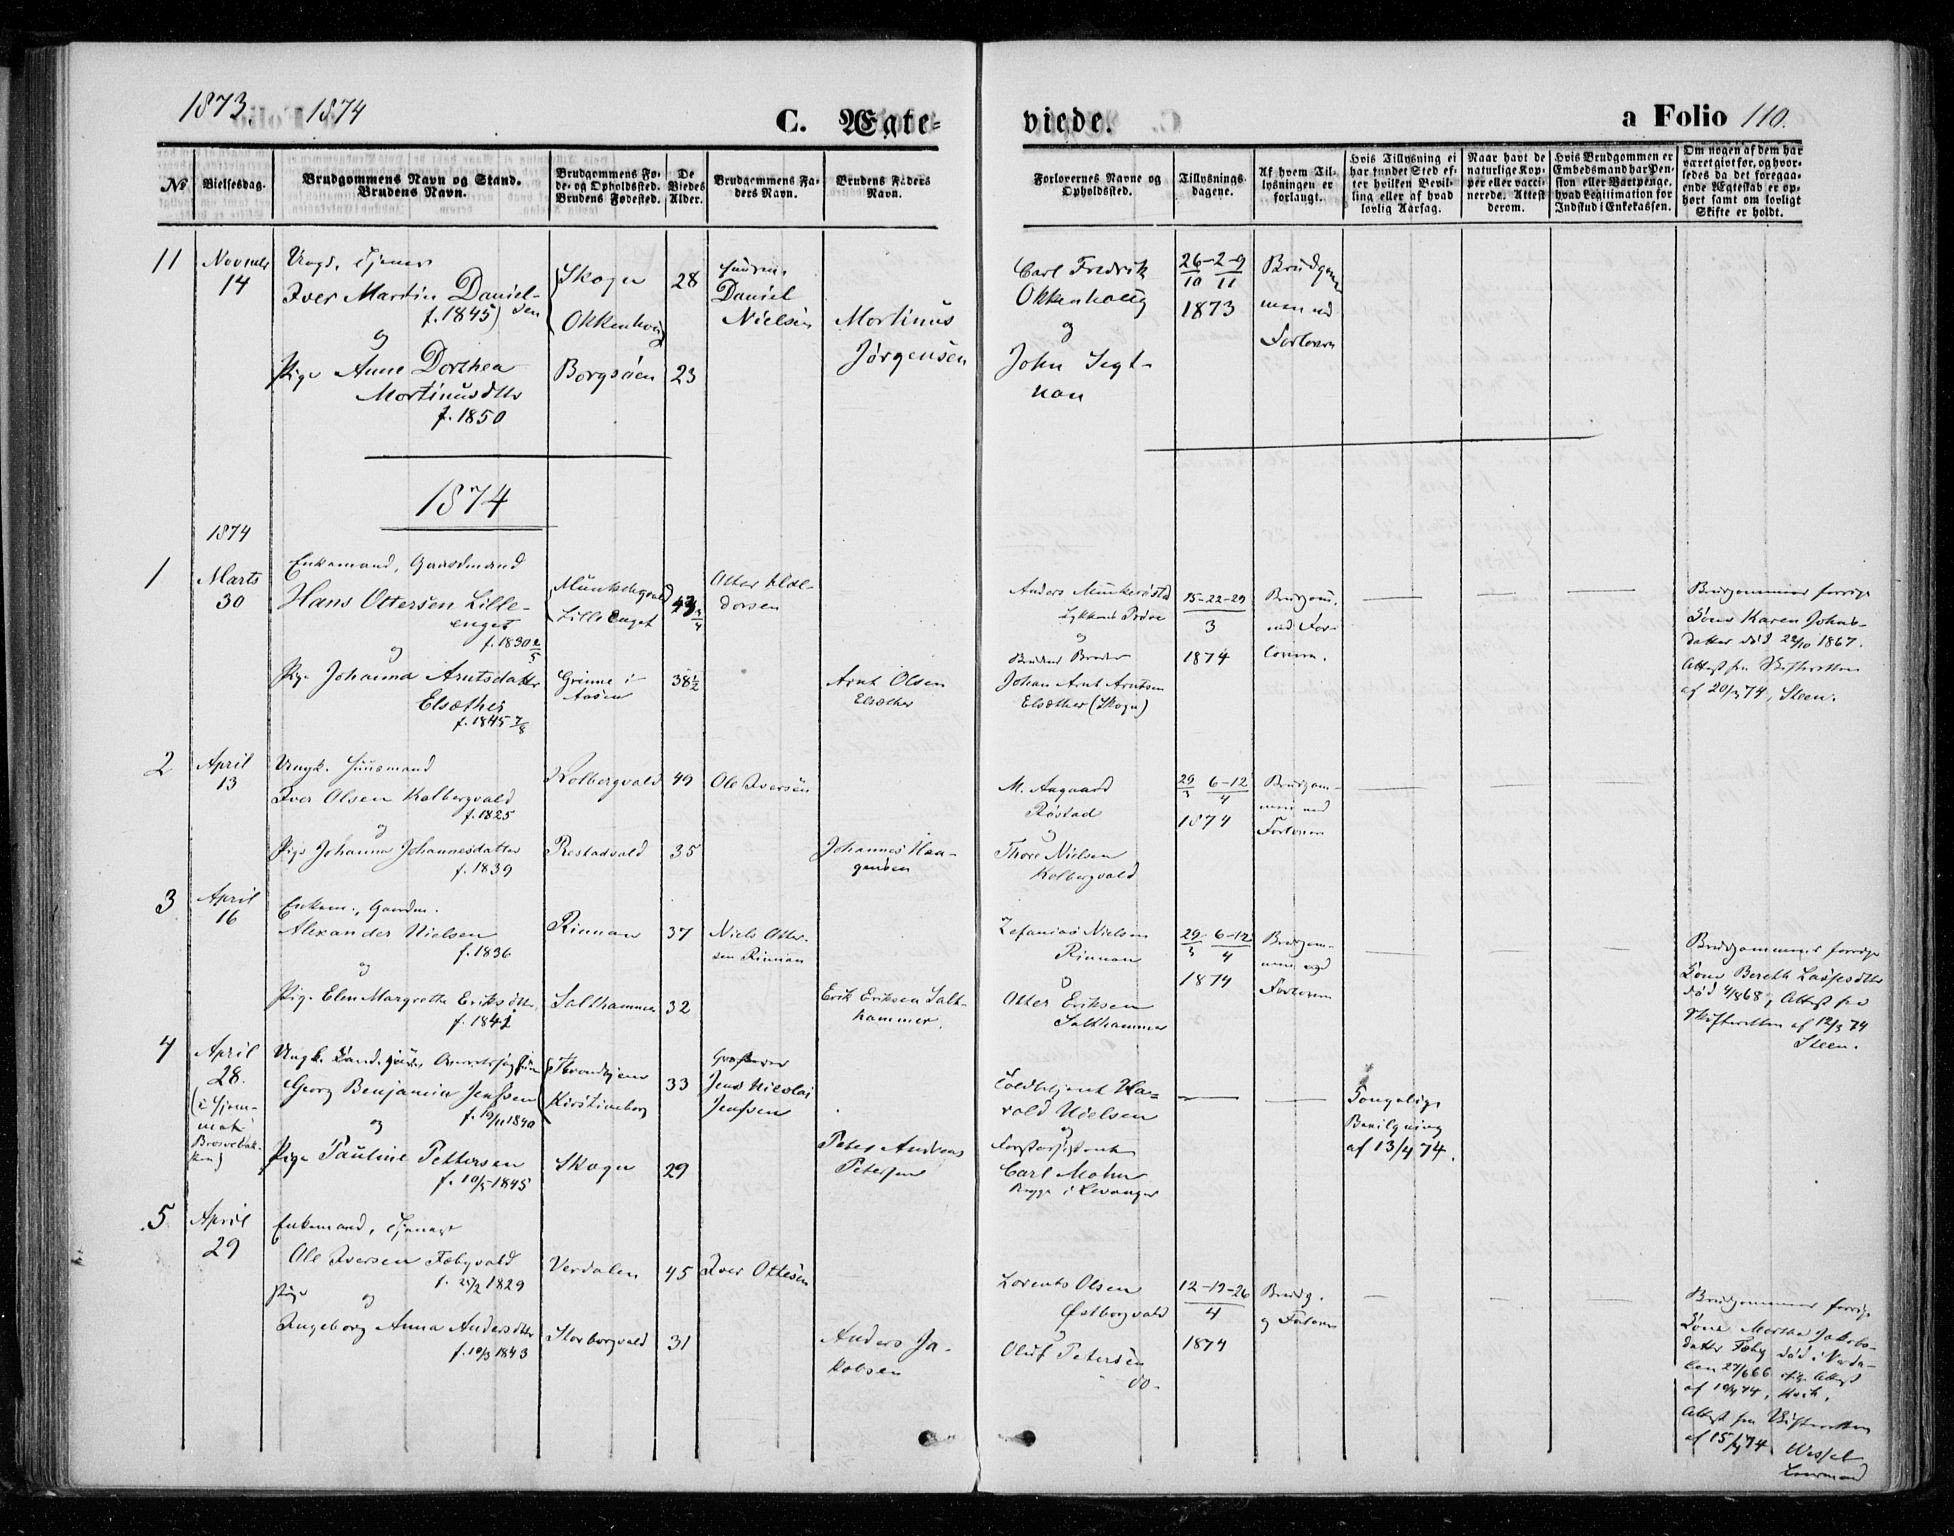 1873. 1874
C. Ægte-
viede.
a Folio 110.
No
Vielsesdag.
Brudgommens Navn og Stand.
Brudens Navn.
Brudgommens Fø-
de- og Opholdssted.
Brudens Fødested.
De
Viedes
Alder.
Brudgommens Fa-
ders Navn.
Brudens Faders
Navn.
Forlovernes Navne og
Opholdssted.
Tillysnings-
dagene.
Af hvem Til-
lysningen er
forlangt.
Hvis Tillysning ei
har fundet Sted ef-
ter hvilken Bevil-
ling eller af hvad
lovlig Aarsag.
Naar havt de
naturlige Kop-
per eller vacci-
nerede. Attest
derom.
Hvis Brudgommen er
Embedsmand har Pen-
sion eller Vartpenge,
hvad Legitimation for
Indskud i Enkekassen.
Om nogen af dem har
været gift før, og hvor-
ledes da det foregaa-
ende Ægteskab er op-
hørt samt om lovligt
Skifte er holdt.
11
14
Iver Martin Daniel-
sen
f. 1845
og
Pige Anne Dorthea
Mortinusdtr
f. 1850
Skogn
Borgsåen
28
23
Daniel
Nielsen
Mortinus
Jørgensen
Carl Fredrik
Okkenhoug
og
John Segt-
nan
26-2-9
10 11
1873
Brudgom
men ved
Forlovern
1874
1874
1
Marts
30
Enkemand, Gaardmand
Hans Ottersen Lille-
enget
f. 1830 2/5
og
Pige Johanna Arntsdatter
Elsæther
f. 1845 7/8
Lille Enget
Grinne i
Aasen
43 3/4
38 1/2
Otter
dorsen
Arnt Olsen
Elsæther
Anders Munkerøstad
og
Brudens Broder
Johan Arnt Arntsen
Elsæther (Skogn)
15-22-29
3
1874
Brudgom.
ved For-
lovern.
Brudgommens forrige
Kone Karen Johns-
datter død 22/10 1867.
Attest fra Skifteretten
af 20/3 74, Steen.
2
April
13
Ungk. Huusmand
Iver Olsen Kolbergvald
f. 1825
og
Pige Johanna Johannesdatter
f. 1839
Kolbergvald
Restadvald
49
35
Ole Iversen
Johannes Haa-
gensen
M. Aagaard
Røstad
og
Thore Nielsen
Kolbergvald
29 6-12
3 4
1874
Brudgom-
men ved
Forlovern
3
April
16
Enkem., Gaardm.
Alexander Nielsen
f. 1836
og
Pige Elen Margretha Eriksdtr
f. 1842
Rinnan
Salthammer
37
32
Niels Otter-
sen Rinnan
Erik Eriksen Salt-
hammer.
Zefanias Nielsen
Rinnan
og
Otter Eriksen
Salthammer
29 6-12
3 4
1874
Brudgom-
men ved
Forlovern
Brudgommens forrige
Kone Bereth Lassesdtr
død 4/8 68, Attest fra
Skifteretten af 12/3 74
Steen.
4
April
28.
Georg Benjamin Jenssen
f. 19/11 1840
og
Pige Pauline Pettersen
f. 10/5 1845
Throndhjem
Kirstineborg
Skogn
33
29
Jens Nicolai
Jenssen
Peter Andreas
Petersen
Toldbetjent Ha-
rald Nielsen
og
Forstassistent
Carl Mohn
Brygge i Levanger
Kongelig
Bevilgning
af 13/4 74.
5
April
29
Enkemand, Tjener
Ole Iversen Fæbyvald
f. 25/2 1829
Pige og
Ingeborg Anna Andersdtr
f. 10/3 1843
Verdalen
Storborgvald
45
31
Iver Ottesen
Anders Ja-
kobsen
Lorents Olsen
Østborgvald
og
Oluf Petersen
do.
12-19-26
4
1874
Brudg.
og Forlovern
Brudgommens forrige
Kone Martha Jakobs-
datter Fæby død i Verda-
len 27/6 66 Attest
af 10/4 74,
Attest fra Skifteretten
af 15/4 74. Wessel